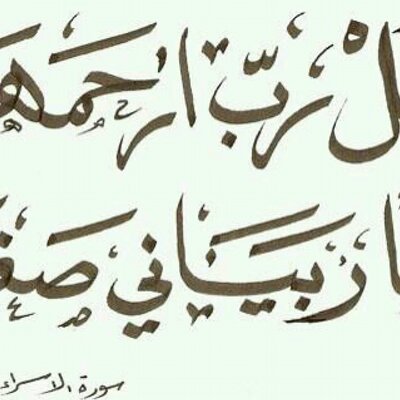 ـل رَبِّ ارحمهـ
ـا رَبياني صغـ
سورة الاسراء